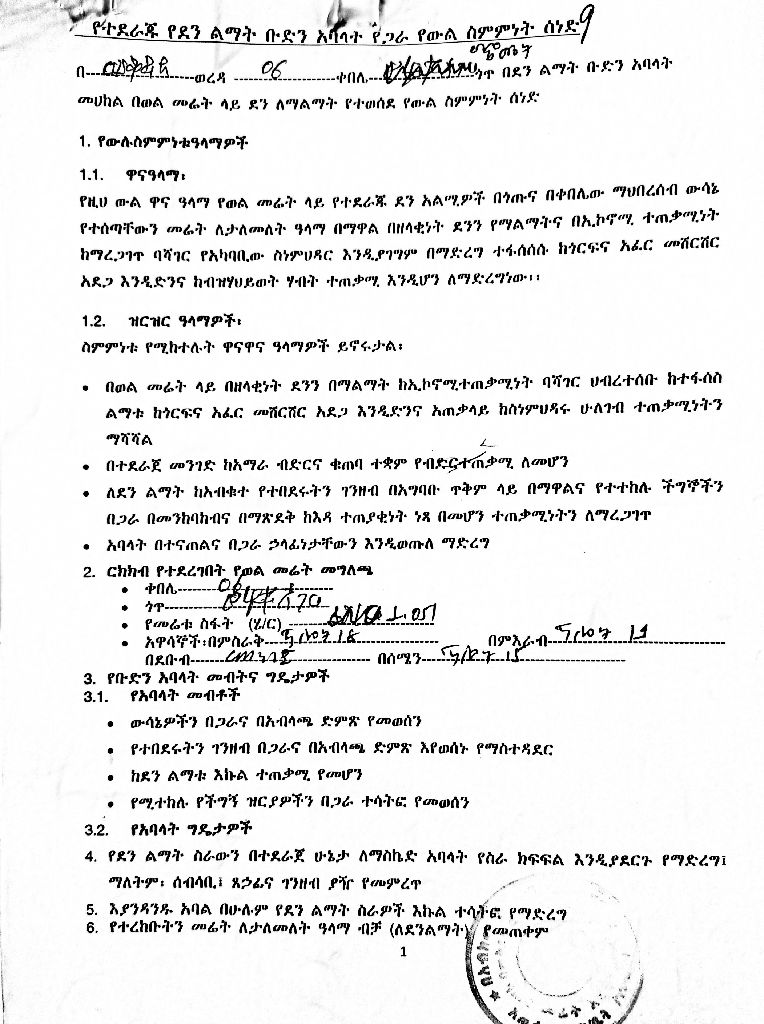 የተደራጁ የደን ልማት ቡድን አባላት የጋራ የውል ስምምነት ሰነድ 9
በ---ወረዳ 06 ቀበሌ ጎጥ በደን ልማት ቡድን አባላት
መሀከል በወል መሬት ላይ ደን ለማልማት የተወሰደ የውል ስምምነት ሰነድ
1. የውሉስምምነቱዓላማዎች
1.1. ዋናዓላማ፡
የዚህ ውል ዋና ዓላማ የወል መሬት ላይ የተደራጁ ደን አልሚዎች በጎጡና በቀበሌው ማህበረሰብ ውሳኔ
የተሰጣቸውን መሬት ለታለመለት ዓላማ በማዋል በዘላቂነት ደንን የማልማትና በኢኮኖሚ ተጠቃሚነት
ከማረጋገጥ ባሻገር የአካባቢው ስነምህዳር እንዲያገግም በማድረግ ተፋሰሰሱ ከጎርፍና አፈር መሸርሸር
አደጋ እንዲድንና ከብዝሃህይወት ሃብት ተጠቃሚ እንዲሆን ለማድረግነው፡፡
1.2. ዝርዝር ዓላማዎች፡
ስምምነቱ የሚከተሉት ዋናዋና ዓላማዎች ይኖሩታል፡
• በወል መሬት ላይ በዘላቂነት ደንን በማልማት ከኢኮኖሚተጠቃሚነት ባሻገር ህብረተሰቡ ከተፋሰስ
ልማቱ ከጎርፍና አፈር መሸርሸር አደጋ እንዲድንና አጠቃላይ ከስነምህዳሩ ሁለገብ ተጠቃሚነትን
ማሻሻል
• በተደራጀ መንገድ ከአማራ ብድርና ቁጠባ ተቋም የብድርተጠቃሚ ለመሆን
• ለደን ልማት ከአብቁተ የተበደሩትን ገንዘብ በአግባቡ ጥቅም ላይ በማዋልና የተተከሉ ችግኞችን
በጋራ በመንከባከብና በማጽደቅ ከእዳ ተጠያቂነት ነጻ በመሆን ተጠቃሚነትን ለማረጋገጥ
• አባላት በተናጠልና በጋራ ኃላፊነታቸውን እንዲወጡለ ማድረግ
2. ርክክብ የተደረገበት የወል መሬት መግለጫ
• ቀበሌ---06
• ጎጥ---
• የመሬቱ ስፋት (ሄ/ር)
• አዋሳኞች፡በምስራቅ--- በምእራብ---
በደቡብ--- በሰሜን---
3. የቡድን አባላት መብትና ግዴታዎች
3.1. የአባላት መብቶች
• ውሳኔዎችን በጋራና በአብላጫ ድምጽ የመወሰን
• የተበደሩትን ገንዘብ በጋራና በአብላጫ ድምጽ እየወሰኑ የማስተዳደር
• ከደን ልማቱ እኩል ተጠቃሚ የመሆን
• የሚተከሉ የችግኝ ዝርያዎችን በጋራ ተሳትፎ የመወሰን
3.2. የአባላት ግዴታዎች
4. የደን ልማት ስራውን በተደራጀ ሁኔታ ለማስኬድ አባላት የስራ ክፍፍል እንዲያደርጉ የማድረግ፤
ማለትም፡ ሰብሳቢ፤ ጸኃፊና ገንዘብ ያዥ የመምረጥ
5. እያንዳንዱ አባል በሁሉም የደን ልማት ስራዎች እኩል ተሳትፎ የማድረግ
6. የተረከቡትን መሬት ለታለመለት ዓላማ ብቻ (ለደንልማት) የመጠቀም
1